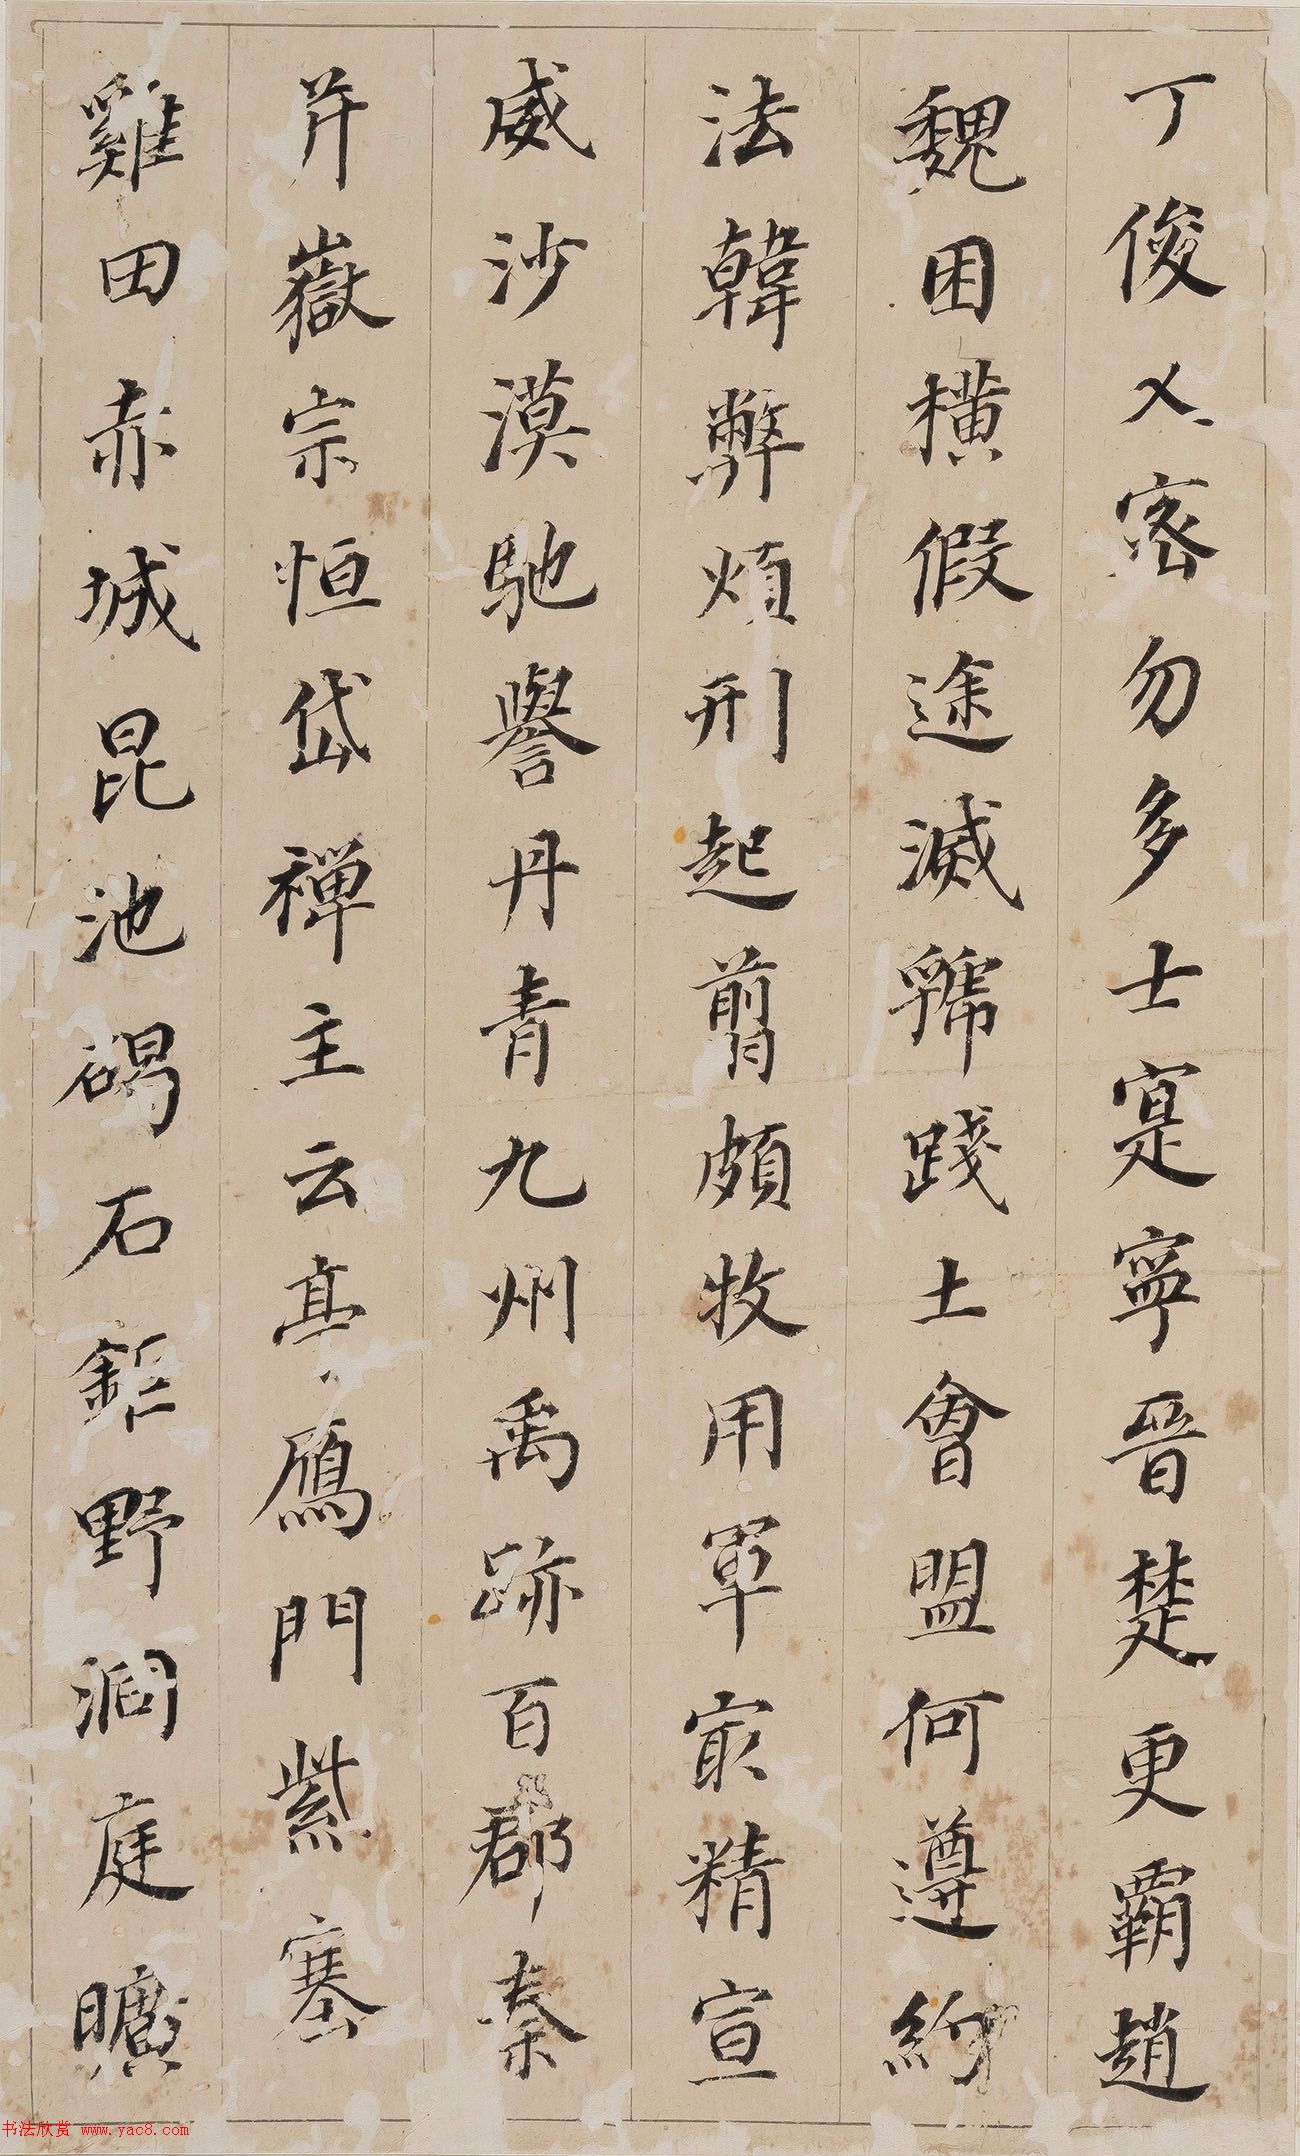 丁俊乂密勿多士寔寧晉楚更霸趙
魏困橫假途滅虢踐土會盟何遵約
法韓弊煩刑起翦頗牧用軍冣精宣
威沙漠馳譽丹青九州禹跡百郡秦
并嶽宗恒岱禪主云亭鴈門紫塞
雞田赤城昆池碣石鉅野洞庭曠
书法欣赏 www.yac8.com